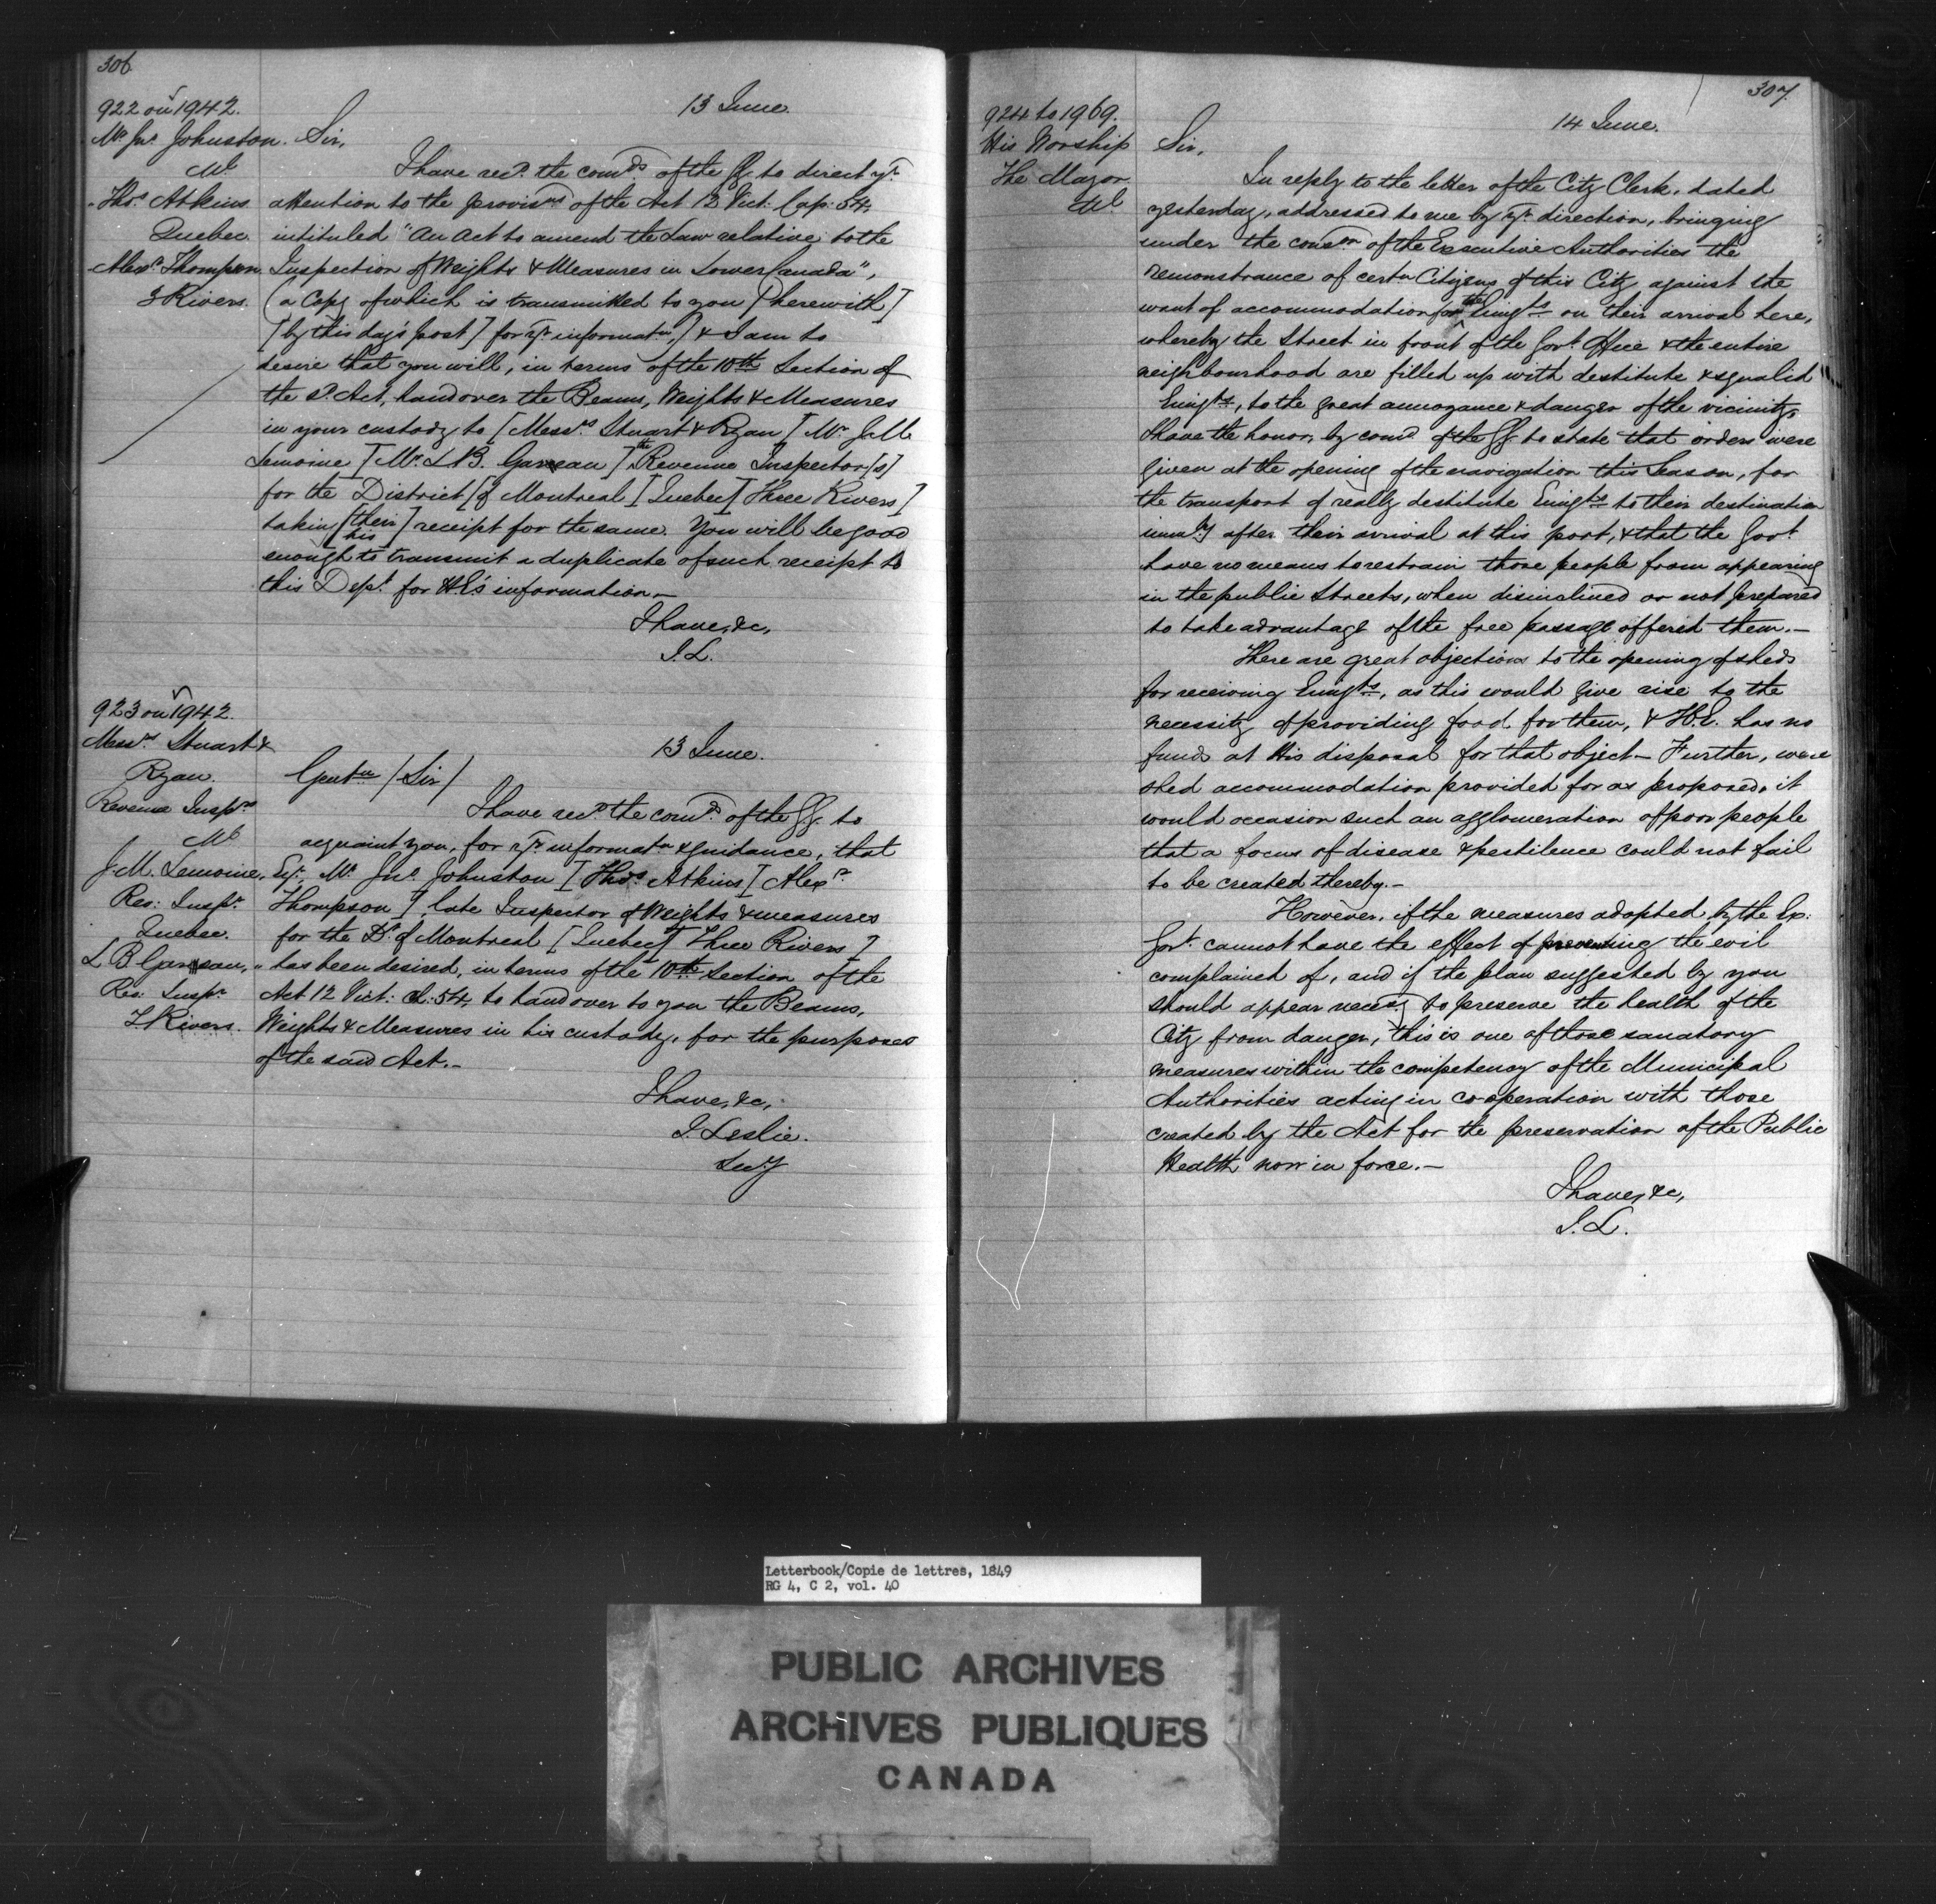 306
922 on 1942.
13 June.
Mr Jno Johnston. Sir,
Ml
I have recd. the comds of the GG. to direct yr.
Thos Atkins attention to the provisns of the Act 12 Vict: Cap: 54,
Quebec. intituled "An Act to amend the Law relative to the
Alexr Thompson Inspection of Weights & Measures in Lower Canada",
3 Rivers. (a Copy of which is transmitted to you [herewith]
[by this day's post] for yr. informatn,) & I am to
desire that you will, in terms of the 10th Section of
the sd. Act, hand over the Beams, Weights & Measures
in your custody to [Messrs Stuart & Ryan [Mr. J.M.
Lemoine [Mr. L.B. Garneau] the Revenue Inspector[s]
for the District [of Montreal [Quebec] [Three Rivers]
taking [their] receipt for the same. You will be good
his
enough to transmit a duplicate of such receipt to
this Dept. for HE's information.—
I have, &c,
J.L.
923 on 1942.
Messrs Stuart &
13 June.
Ryan. Gentn / Sir /
Revenue Insprs
I have recd. the comds. of the GG. to
Ml
acquaint you, for yr. informatn & guidance, that
J.M. Lemoine, Esq. Mr Jno. Johnston [Thos. Atkins [Alexr.
Rev: Inspr. Thompson] late Inspector of Weights & measures
Quebec. for the Dt. of Montreal [Quebec] [Three Rivers]
L B Garneau, " has been desired, in terms of the 10th Section of the
Rev: Inspr. Act 12 Vict: Ch: 54, to hand over to you the Beams,
3 Rivers. Weights & Measures in his custody, for the purposes
of the said Act.—
I have, &c,
J. Leslie.
Secy
307.
924 to 1969.
14 June.
His Worship Sir,
The Mayor.
Ml
In reply to the letter of the City Clerk, dated
yesterday, addressed to me by yr. direction, bringing
under the conson of the Executive Authorities the
remonstrance of certn Citizens of this City against the
want of accommodation for the Emigts on their arrival here,
whereby the Street in front of the Govt. Office & the entire
neighbourhood are filled up with destitute & squalid
Emigts, to the great annoyance & danger of the vicinity,
I have the honor, by comd of the GG to state that orders were
given at the opening of the navigation this Season, for
the transport of really destitute Emigts to their destination
immedy after their arrival at this port, & that the Govt
have no means to restrain those people from appearing
in the public Streets, when disinclined or not prepared
to take advantage of the free passage offered them.—
There are great objections to the opening of sheds
for receiving Emigts, as this would give rise to the
necessity of providing food for them, & H.E. has no
funds at His disposal for that object — Further, were
shed accommodation provided for as proposed, it
would occasion such an agglomeration of poor people
that a focus of disease & pestilence could not fail
to be created thereby.—
However, if the measures adopted by the Ex:
Govt. cannot have the effect of preventing the evil
complained of, and if the plan suggested by you
should appear necesy to preserve the health of the
City from danger, this is one of those sanatory
measures within the competency of the Municipal
Authorities acting in co-operation with those
created by the Act for the preservation of the Public
Health now in force.—
I have, &c,
J.L.
Letterbook/Copie de lettres, 1849
RG 4, C 2, vol. 40
PUBLIC ARCHIVES
ARCHIVES PUBLIQUES
CANADA